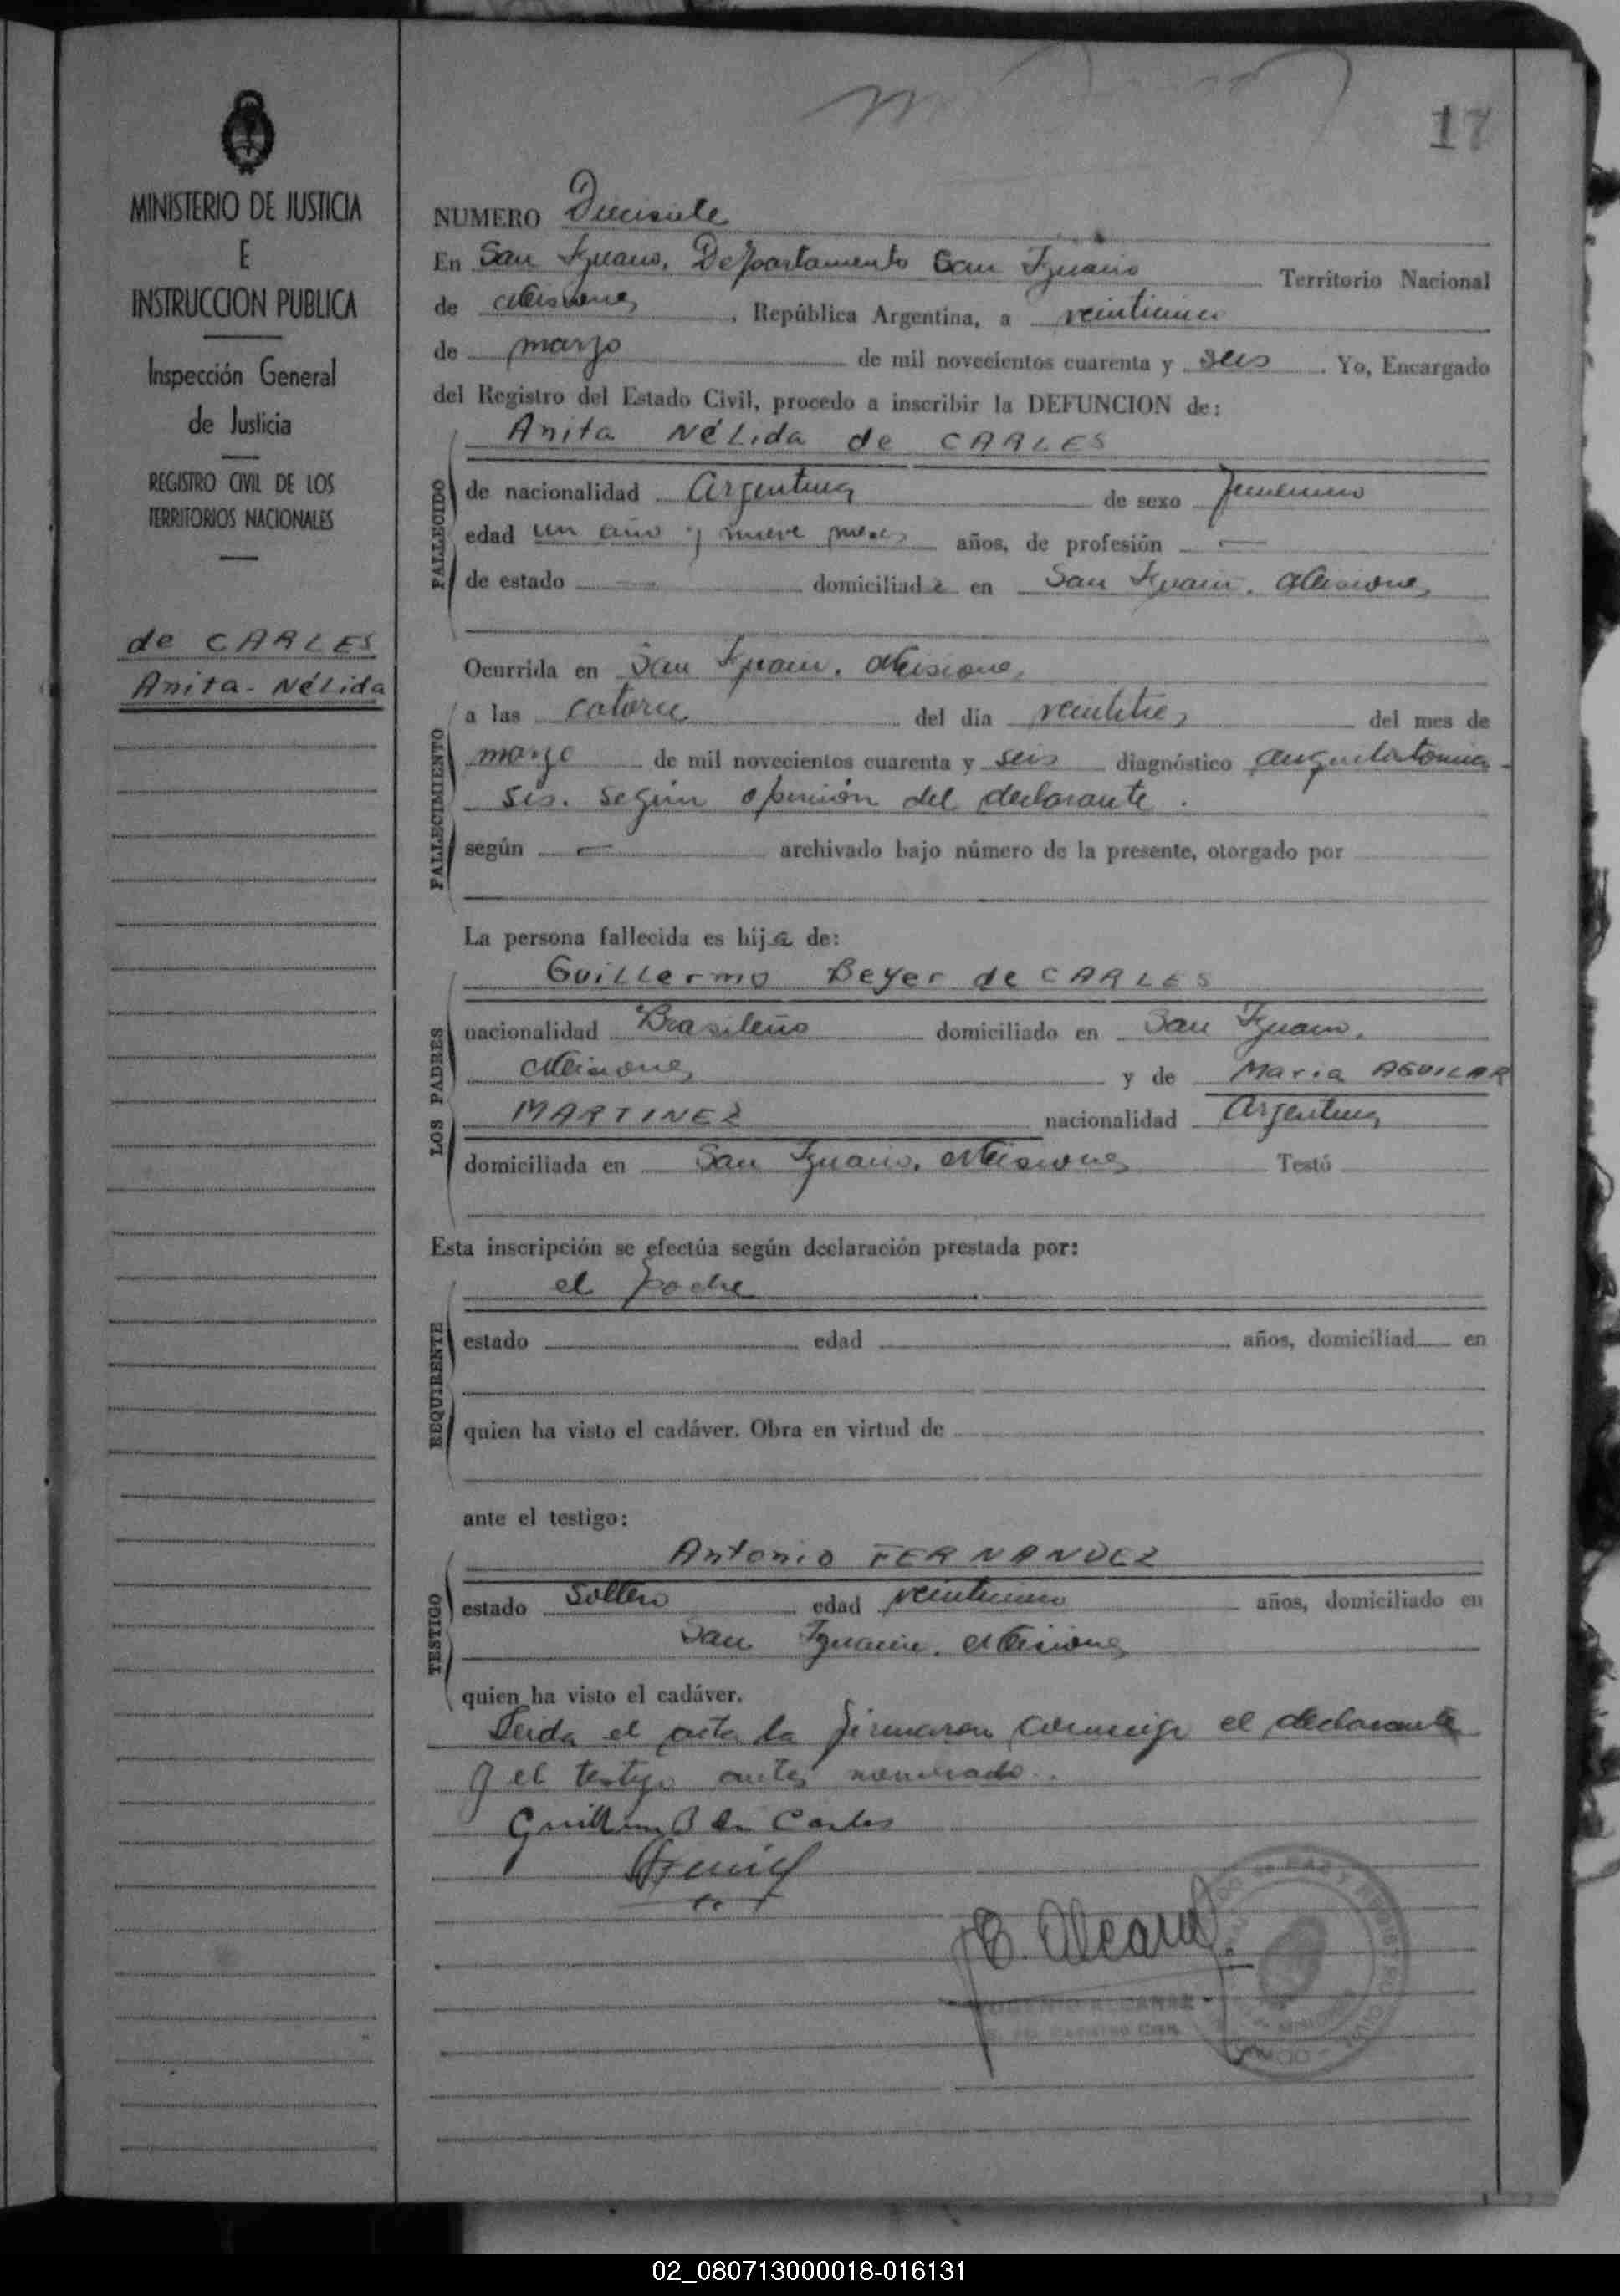 17
MINISTERIO DE JUSTICIA
E
INSTRUCCION PUBLICA
Inspección General
de Justicia
REGISTRO CIVIL DE LOS
TERRITORIOS NACIONALES
de CARLES
Anita-Nélida
NUMERO Diecisiete
En San Ignacio, Departamento San Ignacio Territorio Nacional
de Misiones, República Argentina, a veinticinco
de marzo de mil novecientos cuarenta y seis. Yo, Encargado
del Registro del Estado Civil, procedo a inscribir la DEFUNCION de:
Anita Nélida de CARLES
FALLECIDO
de nacionalidad Argentina de sexo femenino
edad un año y nueve meses años, de profesión —
de estado — domiciliada en San Ignacio, Misiones
Ocurrida en San Ignacio, Misiones
FALLECIMIENTO
a las catorce del día veintitres del mes de
marzo de mil novecientos cuarenta y seis diagnóstico
sis. según opinión del declarante.
según — archivado bajo número de la presente, otorgado por
La persona fallecida es hija de:
Guillermo Beyer de CARLES
LOS PADRES
nacionalidad Brasileño domiciliado en San Ignacio,
Misiones y de Maria AGUILAR
MARTINEZ nacionalidad Argentina
domiciliada en San Ignacio, Misiones Testó
Esta inscripción se efectúa según declaración prestada por:
el padre
REQUIRENTE
estado edad años, domiciliad en
quien ha visto el cadáver. Obra en virtud de
ante el testigo:
Antonio FERNANDEZ
TESTIGO
estado Soltero edad veinticinco años, domiciliado en
San Ignacio, Misiones
quien ha visto el cadáver.
Leida el acta la firmaron conmigo el declarante
y el testigo antes nombrado.
Guillermo B de Carles
E. Alcaraz
02_080713000018-016131